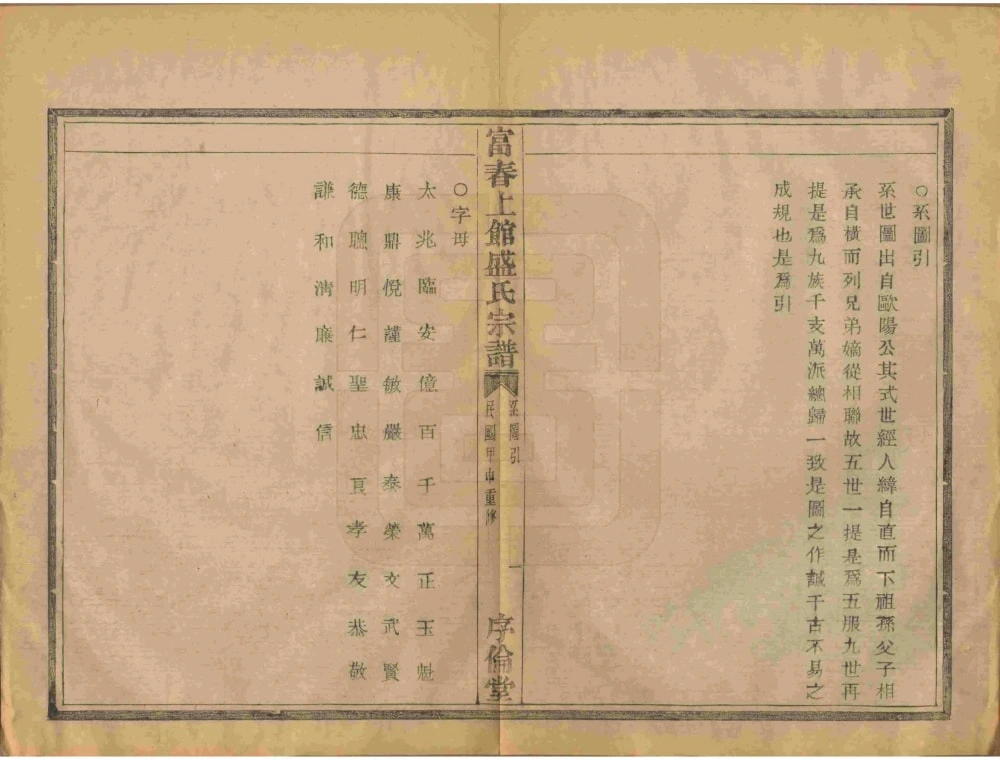 ○系圖引
系世圖出自歐陽公其式世經人緯自直而下祖孫父子相
承自橫而列兄弟嫡從相聯故五世一提是爲五服九世再
提是爲九族千支萬派總歸一致是圖之作誠千古不易之
成規也是爲引
富春上館盛氏宗譜
系圖引
民國甲申重修
一
序倫堂
○字母
太兆臨安億百千萬正玉
康鼎悅謹敏嚴泰榮文武賢
德聰明仁聖忠頁孝友恭敬
謙和清廉誠信